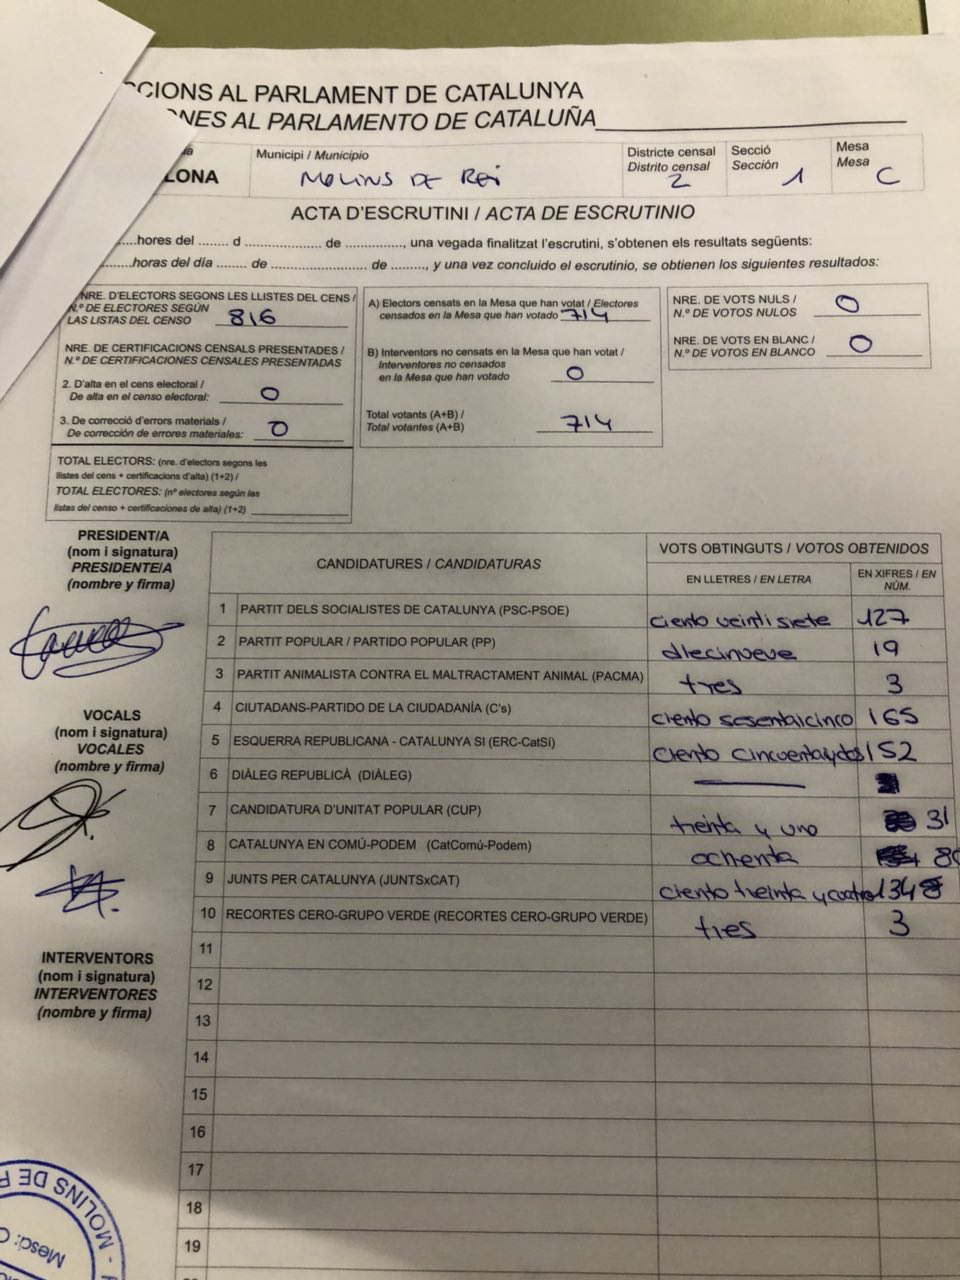 CCIONS AL PARLAMENT DE CATALUNYA
NES AL PARLAMENTO DE CATALUÑA
LONA
Municipi / Municipio
MOLINS DE REI
Districte censal
Distrito censal
2
Secció
Sección
1
Mesa
Mesa
C
ACTA D'ESCRUTINI / ACTA DE ESCRUTINIO
....hores del ........ d .................... de ................, una vegada finalitzat l'escrutini, s'obtenen els resultats següents:
.........horas del día ........ de ......................... de ........., y una vez concluido el escrutinio, se obtienen los siguientes resultados:
NRE. D'ELECTORS SEGONS LES LLISTES DEL CENS /
N.º DE ELECTORES SEGÚN
LAS LISTAS DEL CENSO 816
NRE. DE CERTIFICACIONS CENSALS PRESENTADES /
N.º DE CERTIFICACIONES CENSALES PRESENTADAS
2. D'alta en el cens electoral /
De alta en el censo electoral: 0
3. De correcció d'errors materials /
De corrección de errores materiales: 0
TOTAL ELECTORS: (nre. d'electors segons les
llistes del cens + certificacions d'alta) (1+2) /
TOTAL ELECTORES: (nº electores según las
listas del censo + certificaciones de alta) (1+2)
A) Electors censats en la Mesa que han votat / Electores
censados en la Mesa que han votado 714
B) Interventors no censats en la Mesa que han votat /
Interventores no censados
en la Mesa que han votado 0
Total votants (A+B) /
Total votantes (A+B) 714
NRE. DE VOTS NULS /
N.º DE VOTOS NULOS 0
NRE. DE VOTS EN BLANC /
N.º DE VOTOS EN BLANCO 0
PRESIDENT/A
(nom i signatura)
PRESIDENTE/A
(nombre y firma)
VOCALS
(nom i signatura)
VOCALES
(nombre y firma)
INTERVENTORS
(nom i signatura)
INTERVENTORES
(nombre y firma)
CANDIDATURES / CANDIDATURAS
VOTS OBTINGUTS / VOTOS OBTENIDOS
EN LLETRES / EN LETRA
EN XIFRES / EN
NÚM.
1 PARTIT DELS SOCIALISTES DE CATALUNYA (PSC-PSOE) ciento veintisiete 127
2 PARTIT POPULAR / PARTIDO POPULAR (PP) diecinueve 19
3 PARTIT ANIMALISTA CONTRA EL MALTRACTAMENT ANIMAL (PACMA) tres 3
4 CIUTADANS-PARTIDO DE LA CIUDADANÍA (C's) ciento sesentaicinco 165
5 ESQUERRA REPUBLICANA - CATALUNYA SI (ERC-CatSí) ciento cincuentaydos 152
6 DIÀLEG REPUBLICÀ (DIÀLEG)
7 CANDIDATURA D'UNITAT POPULAR (CUP) treinta y uno 31
8 CATALUNYA EN COMÚ-PODEM (CatComú-Podem) ochenta 80
9 JUNTS PER CATALUNYA (JUNTSxCAT) ciento treinta y cuatro 134
10 RECORTES CERO-GRUPO VERDE (RECORTES CERO-GRUPO VERDE) tres 3
11
12
13
14
15
16
17
18
19
MOLINS DE R
Mesa: C